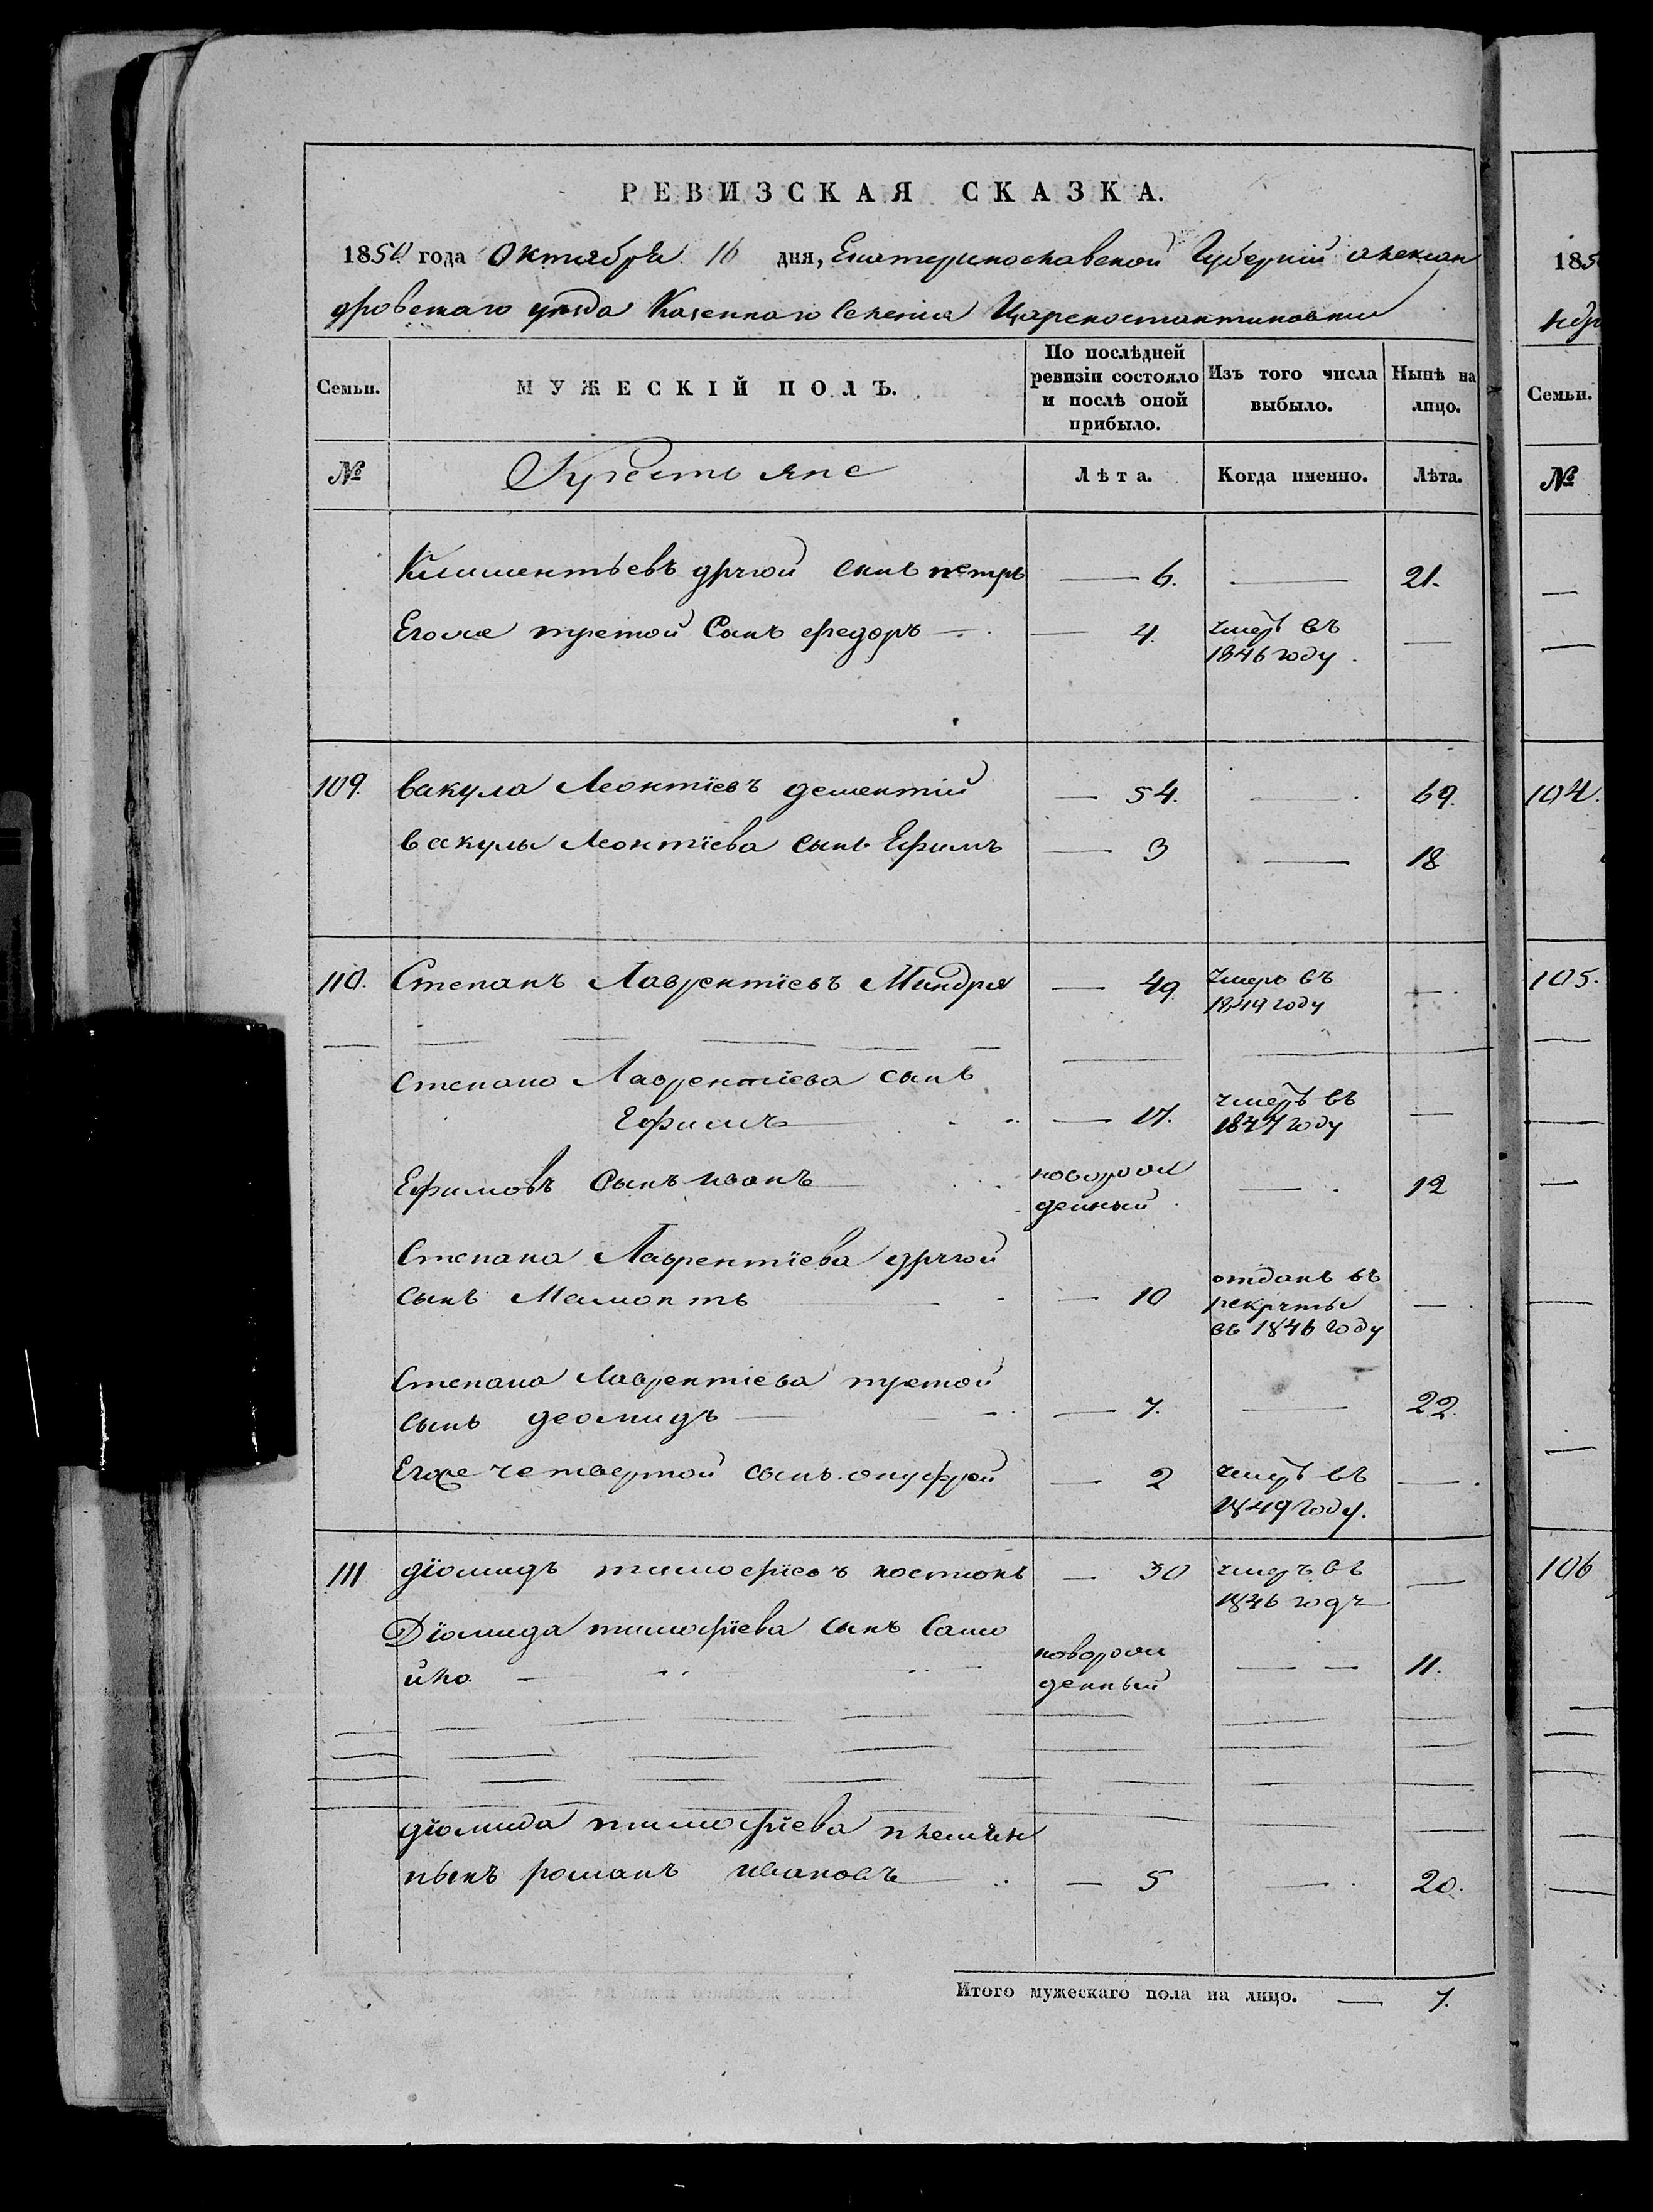 РЕВИЗСКАЯ СКАЗКА.
1850 года Октября 16 дня, Екатеринославской Губерніи Алексан
дровскаго уезда Казеннаго селенія Цареконстантиновки
Семьи. МУЖЕСКІЙ ПОЛЪ. По послѣдней ревизіи состояло и послѣ оной прибыло. Изъ того числа выбыло. Нынѣ на лицо.
№ Крестьяне Лѣта. Когда именно. Лѣта.
Климентьевъ другой сынъ петръ — 6. — 21.
Егоже третой Сынъ федоръ — 4. умеръ въ 1846 году. —
109. вакула Леонтіевъ дементій — 54. — 69.
вакулы Леонтіева сынъ Ефимъ — 3 — 18
110. Степанъ Лаврентіевъ Миндря — 49 умеръ въ 1849 году —
Степана Лаврентіева сынъ
Ефимъ — 17. умеръ въ 1847 году —
Ефимовъ Сынъ иванъ новорож денный — 12
Степана Лаврентіева другой
сынъ Мамонтъ — 10 отданъ въ рекруты въ 1846 году —
Степана Лаврентіева третой
сынъ деомидъ — 7. — 22.
Егоже четвертой сынъ онуфрой — 2 умеръ въ 1849 году. —
111 діомидъ тимофіевъ костюкъ — 30 умеръ въ 1846 году —
Діомида тимофіева сынъ Само
йло. новорож денный — 11.
діомида тимофіева племян
ныкъ романъ ивановъ — 5 — 20.
Итого мужескаго пола на лицо. — 7.
185
ндро
Семьи.
№
104.
105.
106